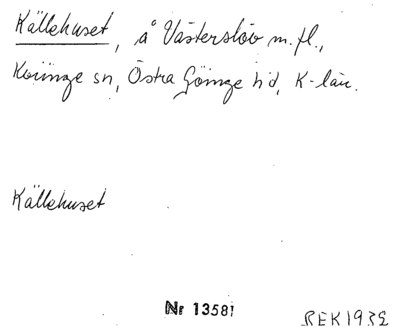 Källehuset, å Västerslöv m.fl.,
Kviinge sn, Östra Göinge hd, K-län.
Källehuset
Nr 13581
REK1932